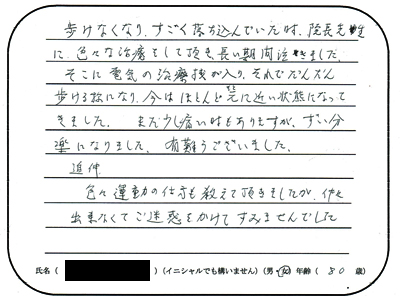 歩けなくなり、すごく落ち込んでいた時、院長先生
に色々な治療をして頂き、長い期間治きました。
そこに電気の治療機が入り、それでだんだん
歩ける様になり、今はほとんど元に近い状態になって
きました。 まだ少し痛い時もありますが、ずい分
楽になりました。 有難うございました。
追伸
色々運動の仕方も教えて頂きましたが、
出来なくてご迷惑をかけてすみませんでした
氏名( )(イニシャルでも構いません)(男・女)年齢( 80 歳)